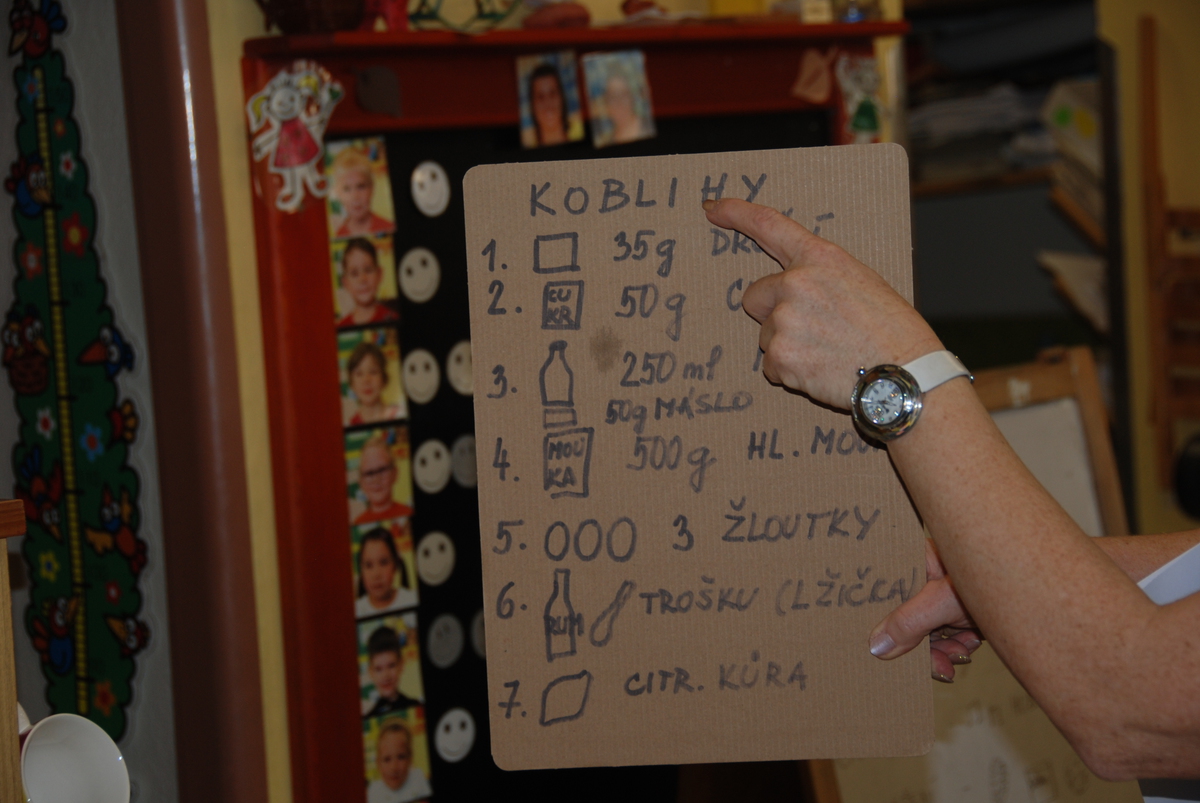 KOBLIHY
1. 35g
2. CUKR 50g
3. 250 ml
50g MÁSLO
4. MOUKA 500g HL.
5. 3 ŽLOUTKY
6. RUM TROŠKU (LŽIČKA)
7. CITR. KŮRA